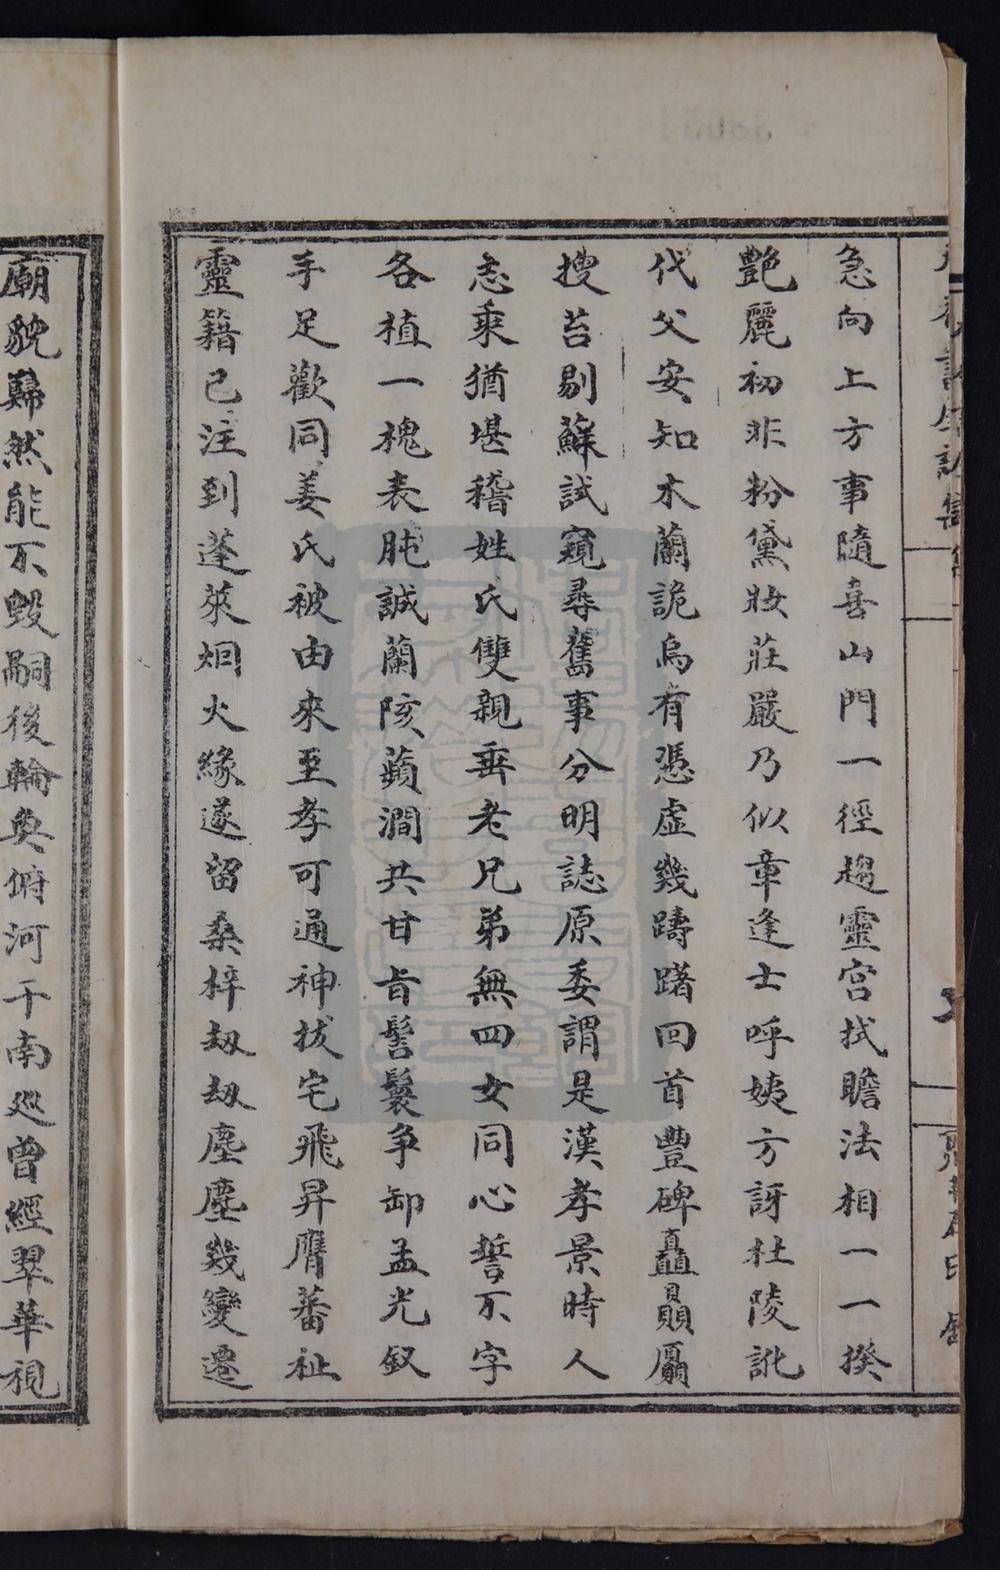 急向上方事隨喜山門一徑趨靈宮拭瞻法相一一揆
艷麗初非粉黛妝莊嚴乃似章逢士呼姨方訝杜陵訛
代父安知木蘭詭烏有憑虛幾躊躇回首豐碑矗贔屭
搜苔剔蘇試窺尋舊事分明誌原委謂是漢孝景時人
志乘猶堪稽姓氏雙親垂老兄弟無四女同心誓不字
各植一槐表肫誠蘭陔蘋澗共甘旨髻鬟争卸孟光釵
手足歡同姜氏被由來至孝可通神拔宅飛昇膺蕃祉
靈籍已注到蓬萊烟火緣遂留桑梓劫劫塵塵幾變遷
廟貌巋然能不毀嗣後輪奐俯河干南巡曾經翠華視